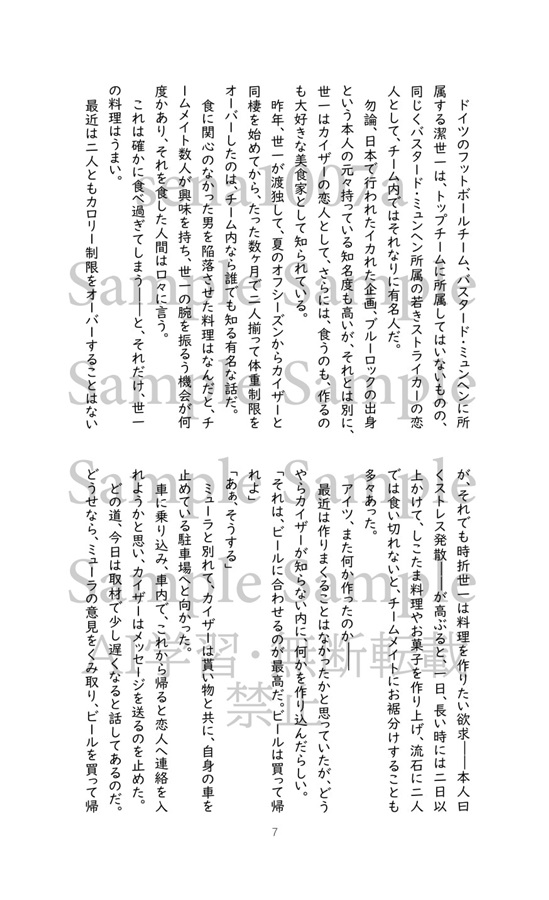 ドイツのフットボールチーム、バスタード・ミュンヘンに所
属する潔世一は、トップチームに所属してはいないものの、
同じくバスタード・ミュンヘン所属の若きストライカーの恋
人として、チーム内ではそれなりに有名人だ。
勿論、日本で行われたイカれた企画、ブルーロックの出身
という本人の元々持っている知名度も高いが、それとは別に、
世一はカイザーの恋人として、さらには、食うのも、作るの
も大好きな美食家として知られている。
昨年、世一が渡独して、夏のオフシーズンからカイザーと
同棲を始めてから、たった数ヶ月で二人揃って体重制限を
オーバーしたのは、チーム内なら誰でも知る有名な話だ。
食に関心のなかった男を陥落させた料理はなんだと、チ
ームメイト数人が興味を持ち、世一の腕を振るう機会が何
度かあり、それを食した人間は口々に言う。
これは確かに食べ過ぎてしまう――と、それだけ、世一
の料理はうまい。
最近は二人ともカロリー制限をオーバーすることはない
が、それでも時折世一は料理を作りたい欲求――本人曰
くストレス発散――が高ぶると、一日、長い時には二日以
上かけて、しこたま料理やお菓子を作り上げ、流石に二人
では食い切れないと、チームメイトにお裾分けすることも
多々あった。
アイツ、また何か作ったのか
最近は作りまくることはなかったかと思っていたが、どう
やらカイザーが知らない内に、何かを作り込んだらしい。
「それは、ビールに合わせるのが最高だ。ビールは買って帰
れよ」
「あぁ、そうする」
ミューラと別れて、カイザーは貰い物と共に、自身の車を
止めている駐車場へと向かった。
車に乗り込み、車内で、これから帰ると恋人へ連絡を入
れようかと思い、カイザーはメッセージを送るのを止めた。
どの道、今日は取材で少し遅くなると話してあるのだ。
どうせなら、ミューラの意見をくみ取り、ビールを買って帰
7
Sample Sample
Sample Sample
Sample Sample
Sample Sample
AI学習・無断転載
禁止